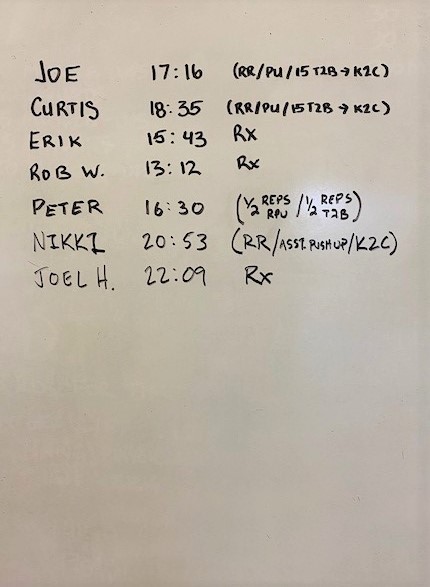 JOE 17:16 (RR/PU/15 T2B → K2C)
CURTIS 18:35 (RR/PU/15 T2B → K2C)
ERIK 15:43 Rx
ROB W. 13:12 Rx
PETER 16:30 (1/2 REPS RPU / 1/2 REPS T2B)
NIKKI 20:53 (RR/ASST. PUSHUP/K2C)
JOEL H. 22:09 Rx